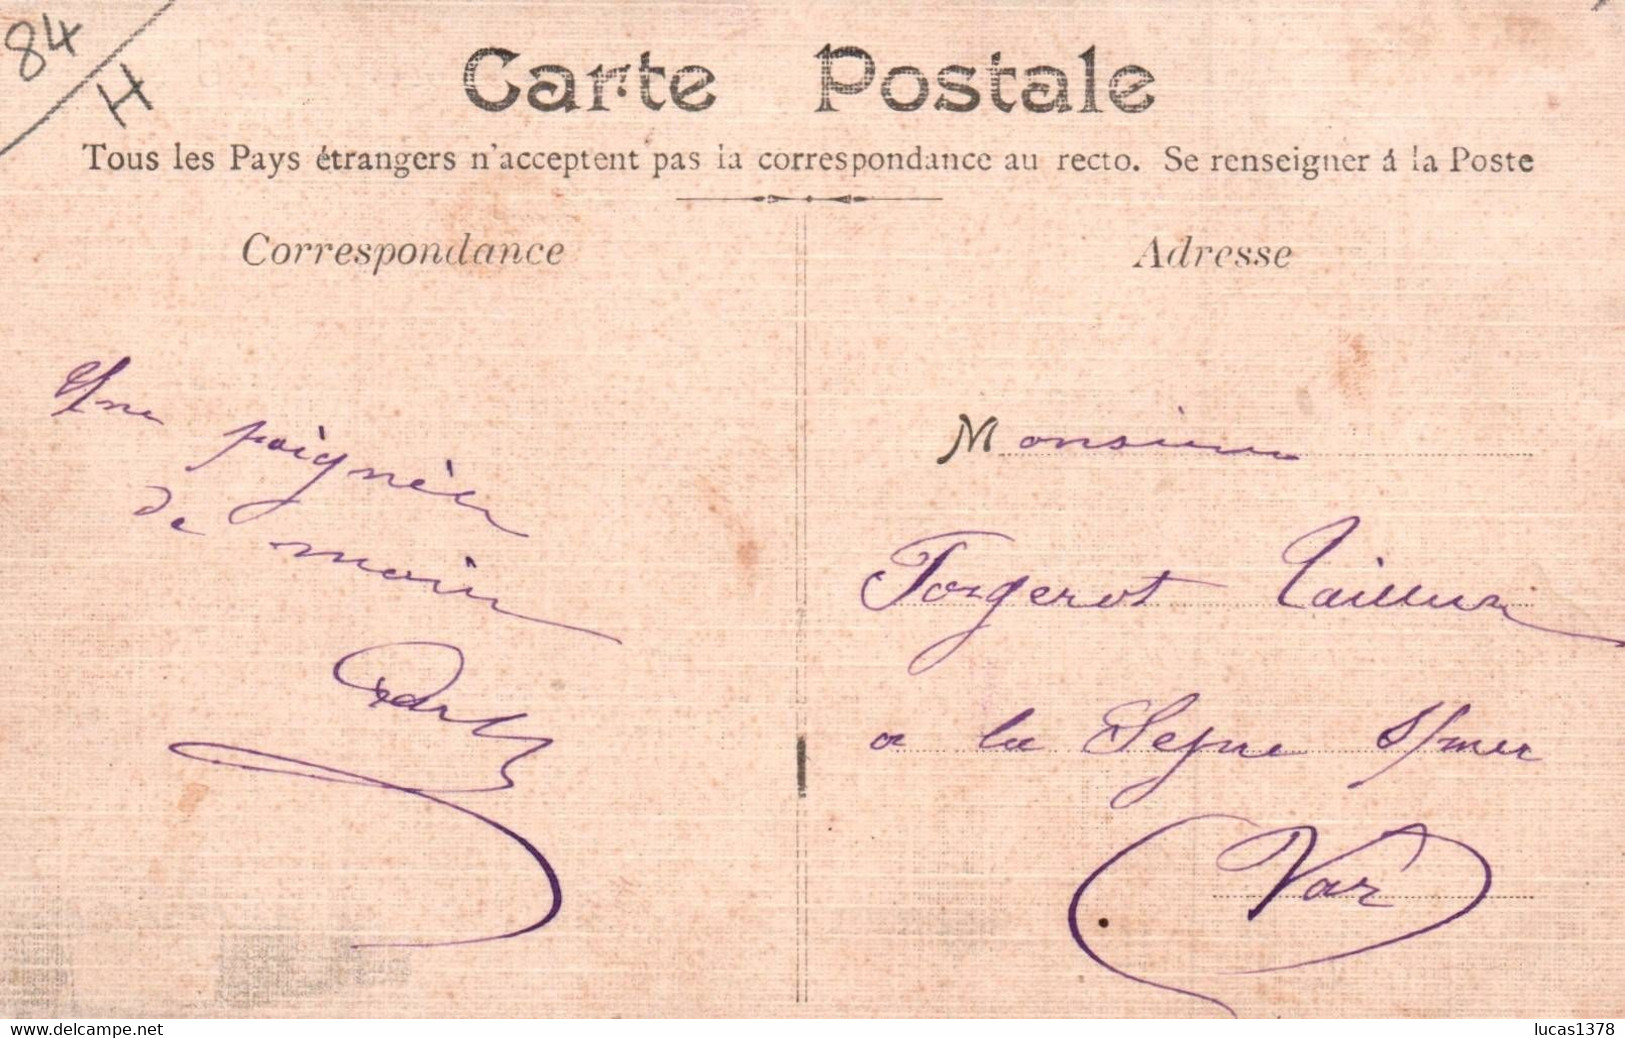 84
H
Carte Postale
Tous les Pays étrangers n'acceptent pas la correspondance au recto. Se renseigner á la Poste
Correspondance
Adresse
Une poignée
de main
Monsieur
Forgerot Tailleur
a la Seyne s/mer
Var
www.delcampe.net
lucas1378